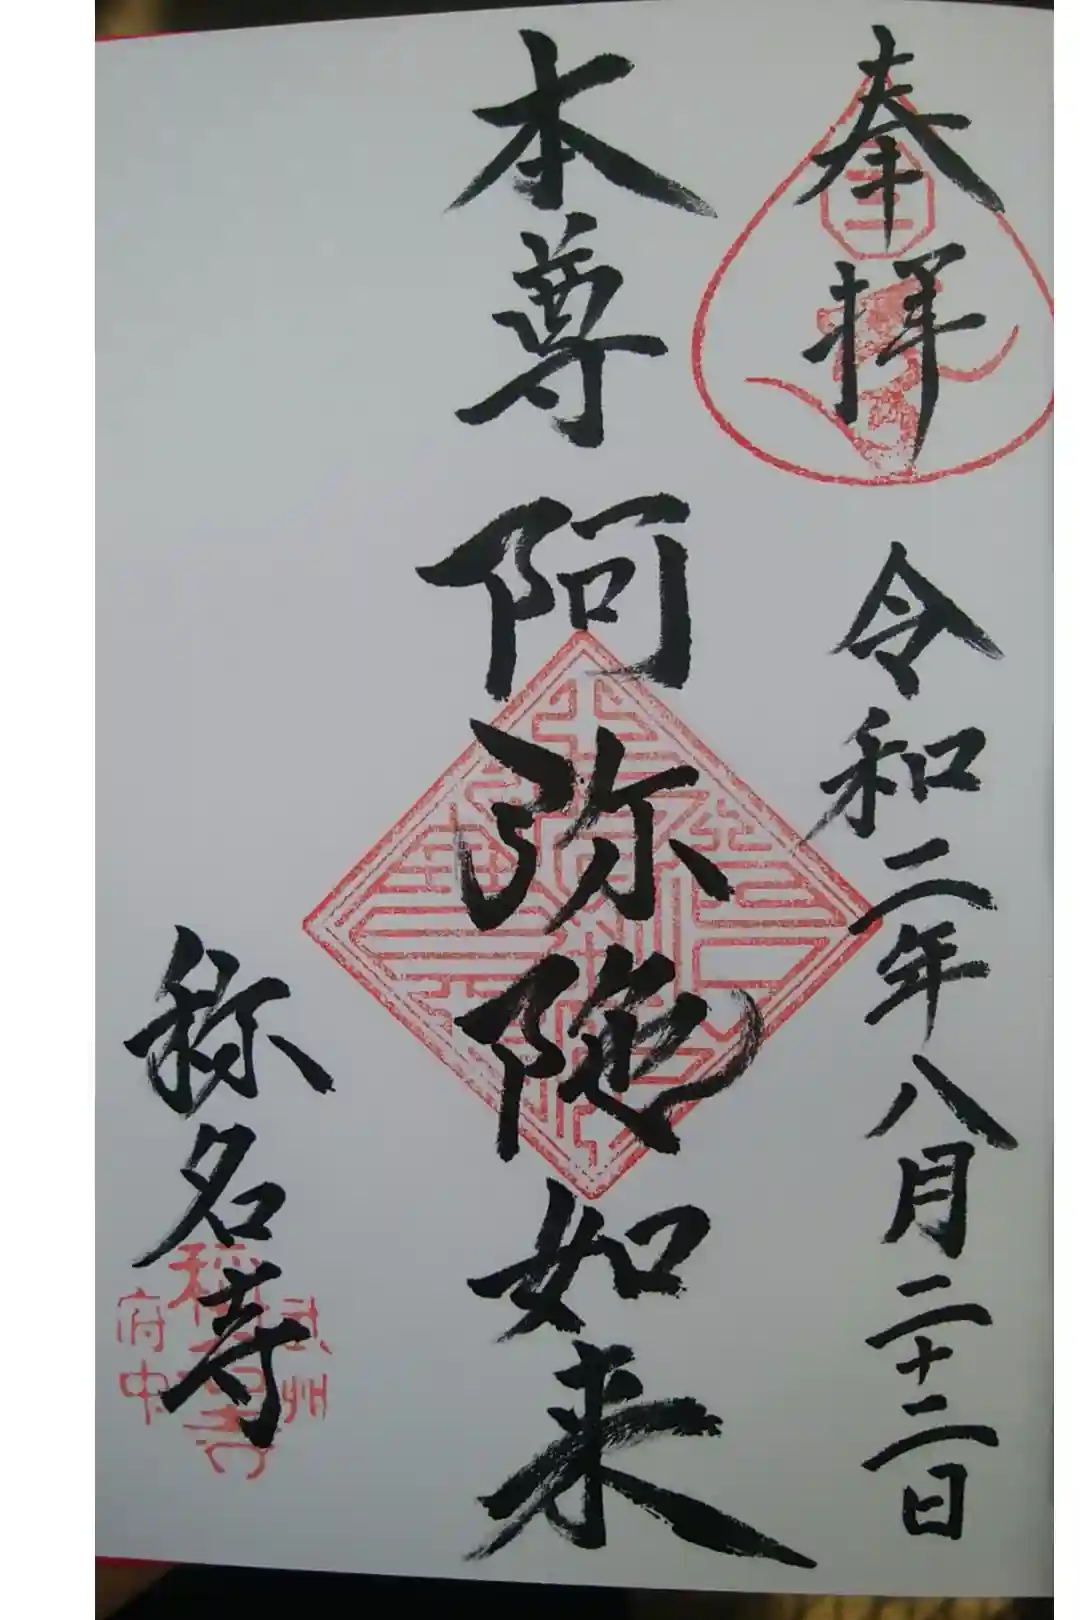 奉拝
令和二年八月二十二日
本尊 阿弥陀如来
称名寺
武州
称名寺
府中